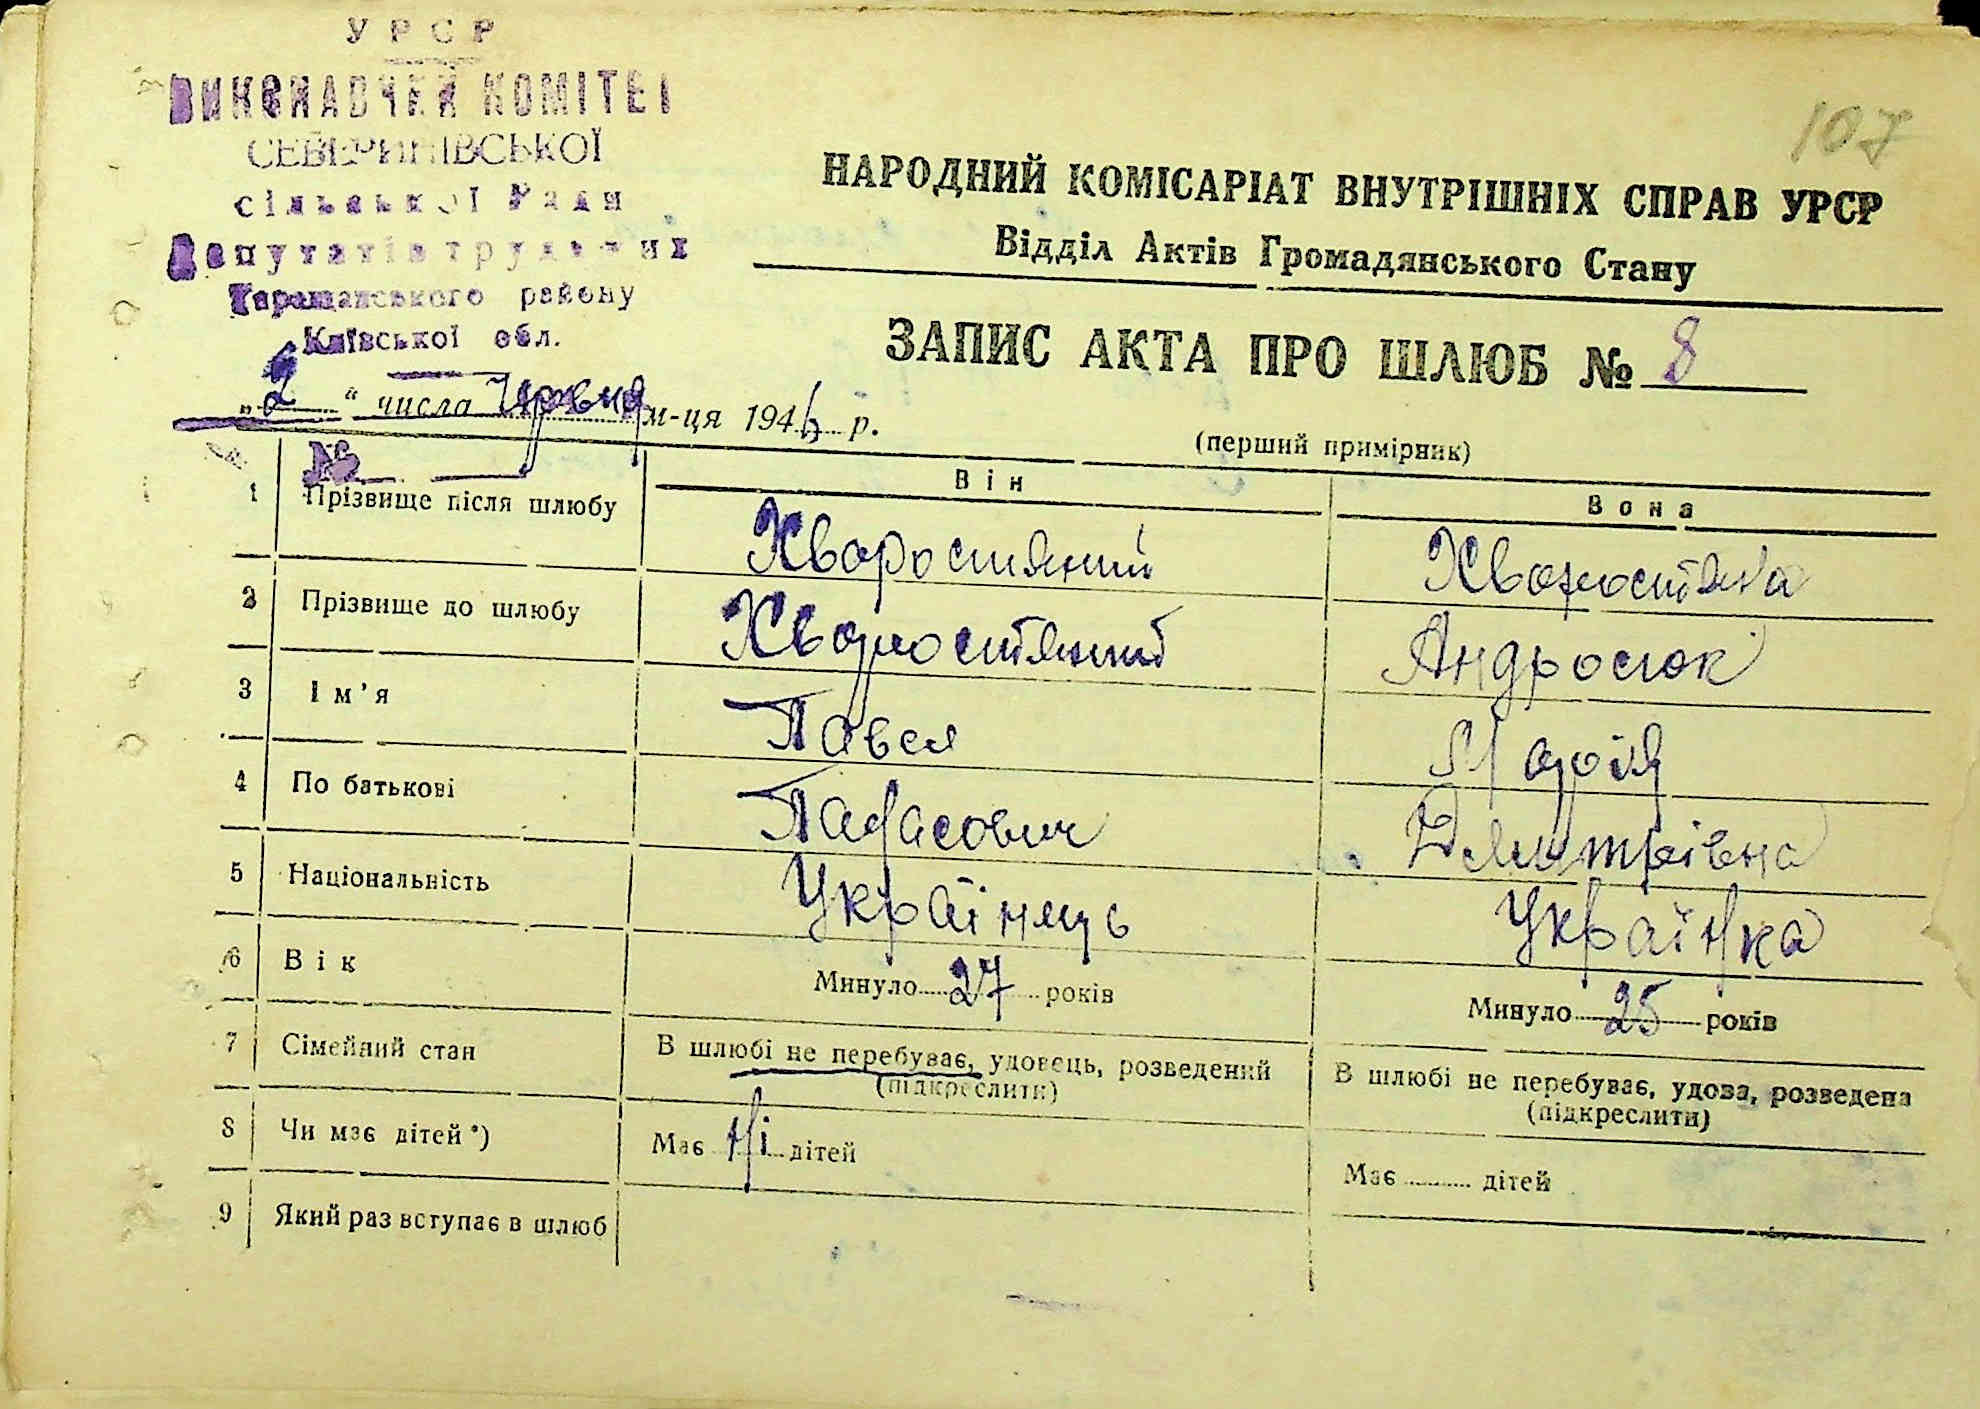 107
УРСР
ВИКОНАВЧИЙ КОМІТЕТ
СЕВЕРИНІВСЬКОЇ
сільської Ради
Депутатів трудящих
Таращанського району
Київської обл.
НАРОДНИЙ КОМІСАРІАТ ВНУТРІШНІХ СПРАВ УРСР
Відділ Актів Громадянського Стану
ЗАПИС АКТА ПРО ШЛЮБ № 8
„2“ числа Червня м-ця 194 р.
(перший примірник)
№
Він Вона
1 Прізвище після шлюбу Хворостяний Хворостяна
2 Прізвище до шлюбу Хворостяний Андросюк
3 Ім’я Павел Марія
4 По батькові Тарасович Дмитрівна
5 Національність Українець Українка
6 Вік Минуло 27 років Минуло 25 років
7 Сімейний стан В шлюбі не перебуває, удовець, розведений В шлюбі не перебуває, удова, розведена
(підкреслити) (підкреслити)
8 Чи має дітей*) Має Ні дітей Має дітей
9 Який раз вступає в шлюб